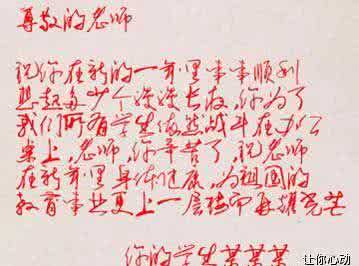 尊敬的老师
祝你在新的一年里事事顺利
想起每多少个漫漫长夜，你为了
我们所有学生依然战斗在办公
桌上，老师，你辛苦了，祝老师
在新年里身体健康，为祖国的
教育事业更上一层楼而再耀光芒
你的学生某某某
让你心动